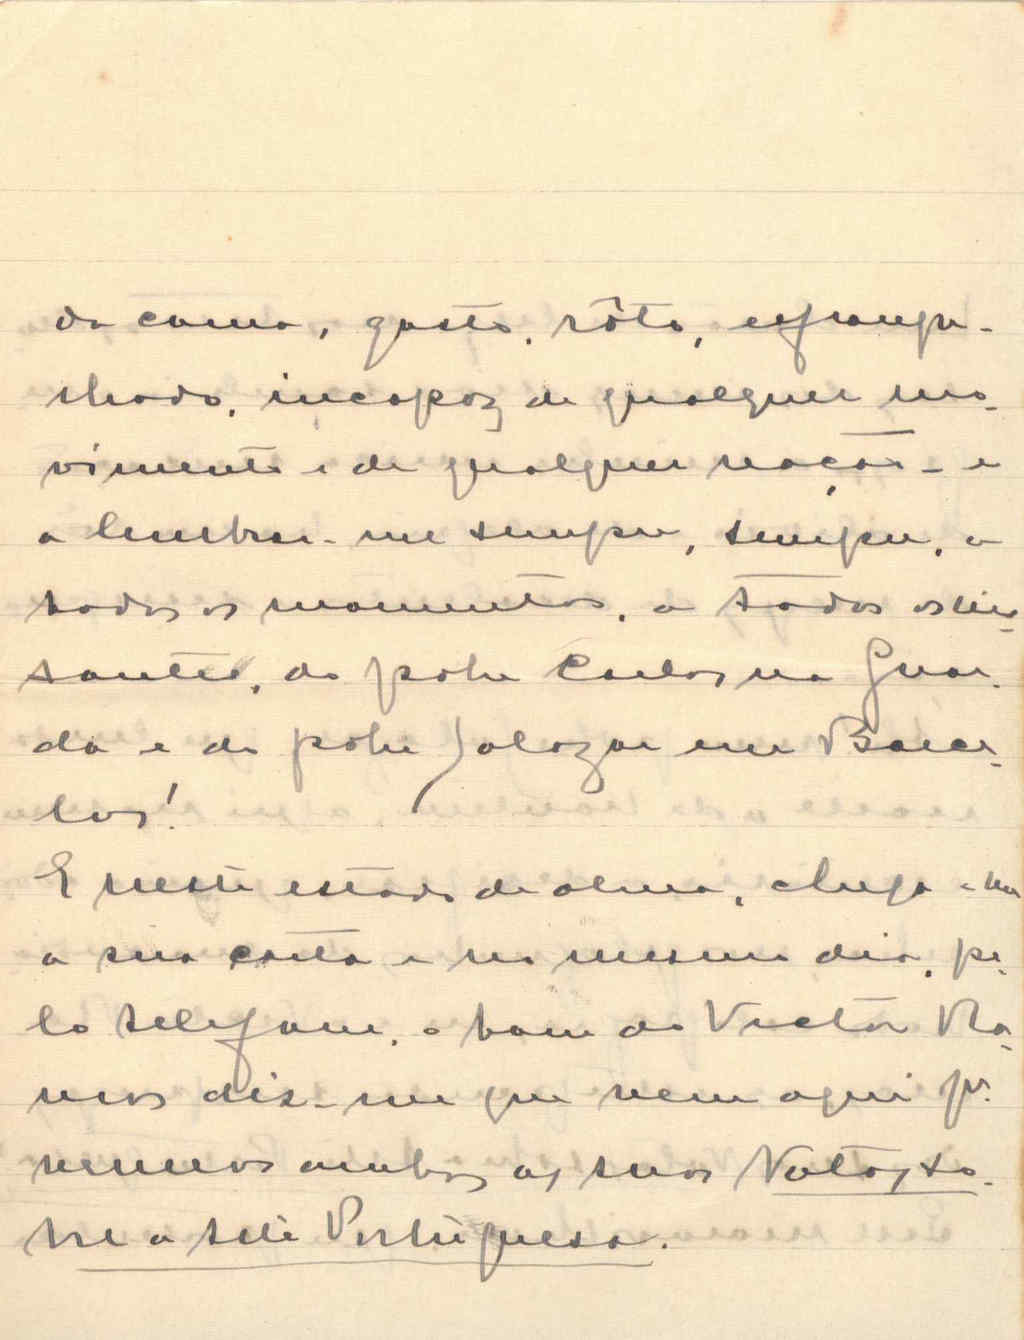 da cama, gasto, rôto, esfranga-
lhado, incapaz de qualquer mo-
vimento e de qualquer reacção - e
a lembrar-me sempre, sempre, a
todos os momentos, a todos os ins-
tantes, do pobre Carlos na Guar-
da e do pobre Salazar em Barce-
los!
E neste estado de alma, chega-me
a sua carta e no mesmo dia, pe-
lo telefone, o bom do Victor Ra-
mos diz-me que vem aqui pa-
ra vermos ambos as suas Notas so-
bre a tela Portuguesa.